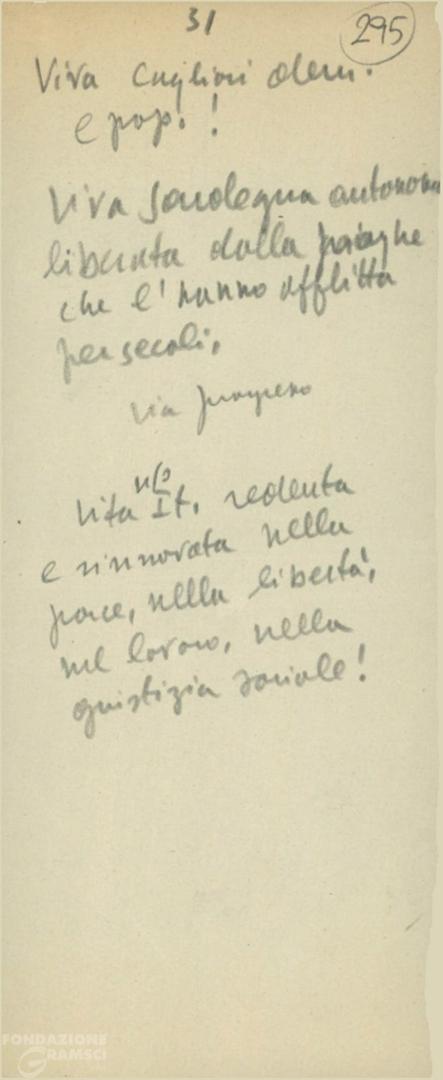 31
295
Viva Cagliari dem.
e pop. !
Viva Sardegna autonoma
liberata dalla piaghe
che l'hanno afflitta
per secoli,
via progresso
n/s
Vita It. redenta
e rinnovata nella
pace, nella libertà,
nel lavoro, nella
giustizia sociale!
FONDAZIONE
GRAMSCI